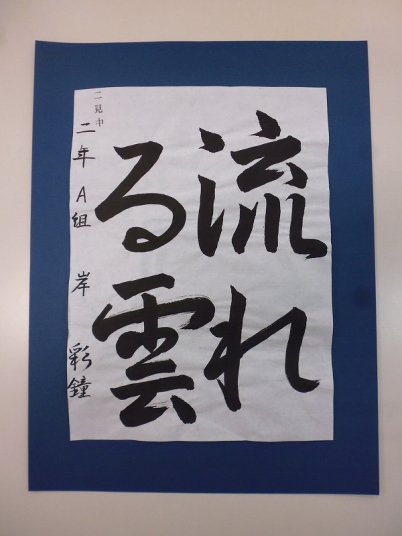 流れ
る雲
二見中
二年A組 岸 彩鐘